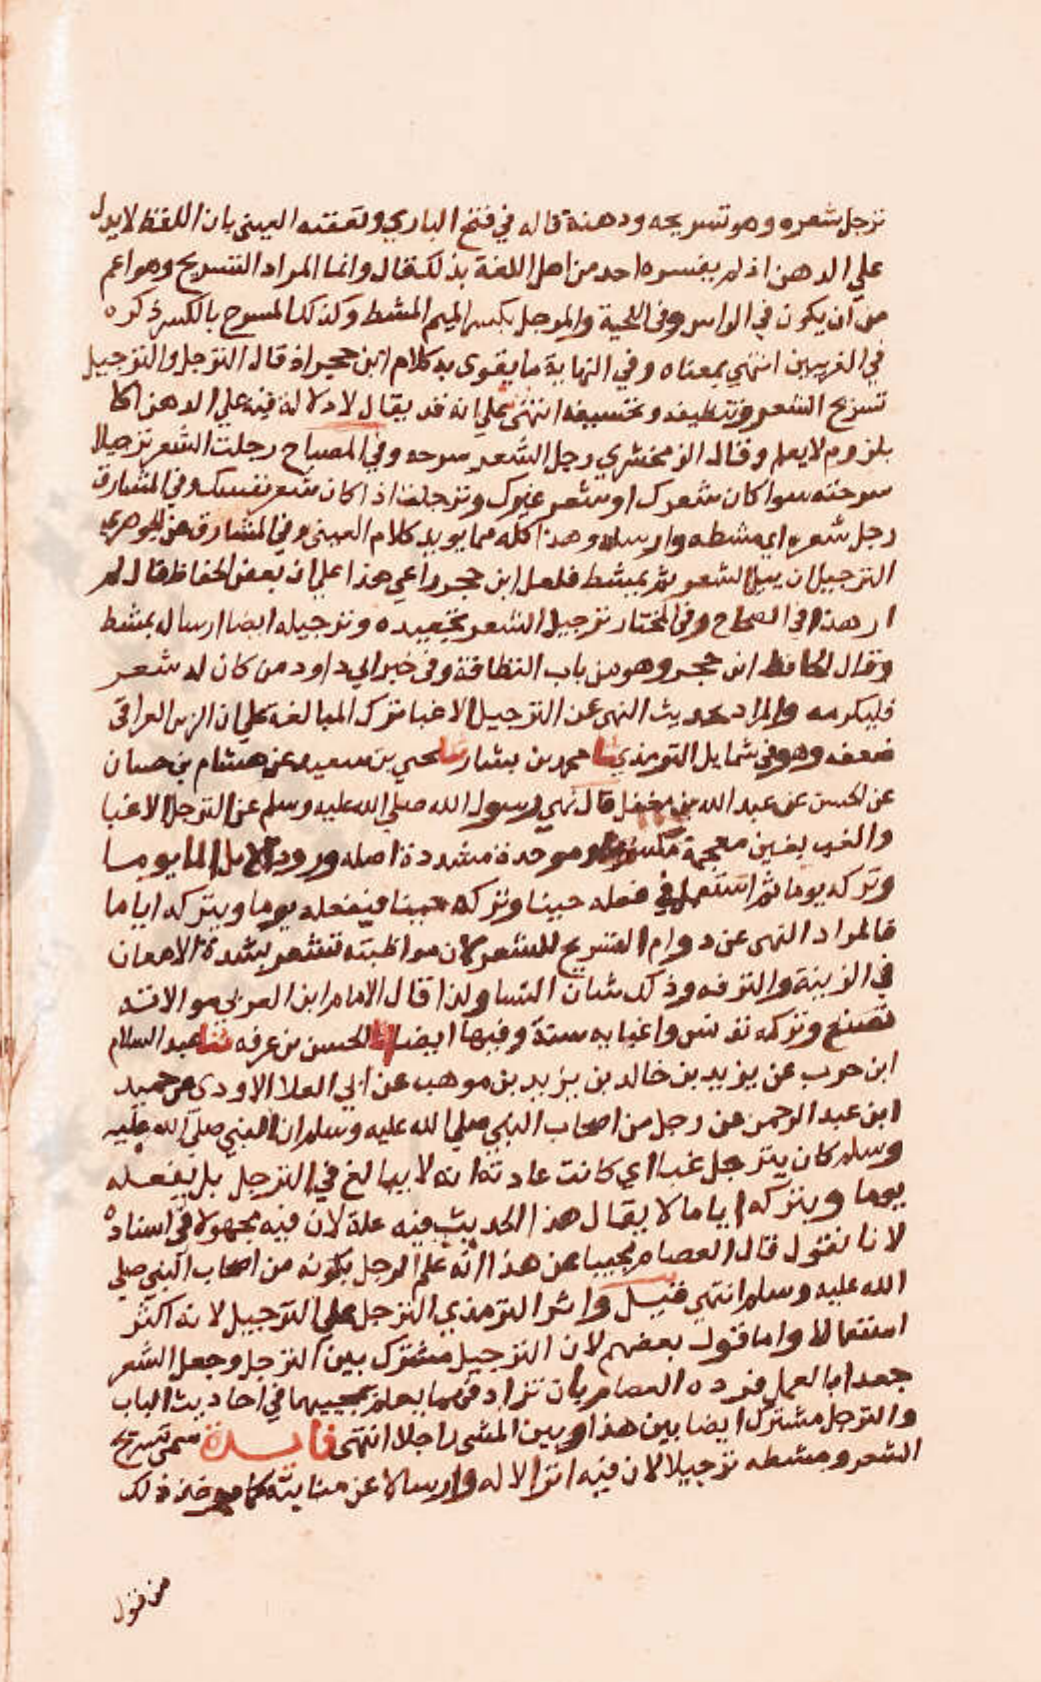 ترجل شعره وهو تسريحه ودهنه قاله في فتح الباري وتعقبه العيني بان اللفظ لا يدل
علي الدهن اذ لم يفسره احد من اهل اللغة بذلك قال وانما المراد التسريح وهو اعم
من ان يكون في الراس وفي اللحية والمرجل بكسر الميم المشط وكذلك المسرح بالكسر ذكره
في الغريبين انتهي بمعناه وفي النهاية ما يقوى به كلام ابن حجر اذ قال الترجل والترجيل
تسريح الشعر وتنظيفه وتحسينه انتهى علي انه قد يقال لا دلالة فيه علي الدهن
بلزوم لا يعلم وقال الزمخشري رجل الشعر سرحه وفي المصباح رجلت الشعر ترجيلا
سرحته سوا كان شعرك او شعر غيرك وترجلت اذا كان شعر نفسك وفي المشارق
رجل شعره اي مشطه وارسله وهذا كله مما يويد كلام العيني وفي المشارق عن الجوهري
الترجيل ان يبل الشعر ثم يمشط فلعل ابن حجر راعي هذا علي ان بعض الحفاظ قال لم
ار هذا في الصحاح وفي المختار ترجيل الشعر تجعيده وترجيله ايضا ارساله بمشط
وقال الحافظ ابن حجر وهو من باب النظافة وفي خبر ابي داود من كان له شعر
فليكرمه والمراد بحديث النهى عن الترجيل الا غبا ترك المبالغة علي ان الزين العراقي
ضعفه وهو في شمايل الترمذي ثنا محمد بن بشار ثنا يحيي بن سعيد عن هشام بن حسان
عن الحسن عن عبد الله بن مغفل قال نهي رسول الله صلي الله عليه وسلم عن الترجل الا غبا
والغب بغين معجمة مكسورة وموحدة مشددة اصله ورود الابل الما يوما
وتركه يوما ثم استعمل في فعله حينا وتركه حينا فيفعله يوما ويتركه اياما
فالمراد النهى عن دوام التسريح للشعر لان مواظبته تشعر بشدة الامعان
في الزينة والترفه وذلك شان النسا ولذا قال الامام ابن العربي موالاته
تصنع وتركه تدنس واغبابه سنة وفيها ايضا ثنا الحسن بن عرفه ثنا عبد السلام
ابن حرب عن يزيد بن خالد بن يزيد بن موهب عن ابي العلا الاودي عن حميد
ابن عبد الرحمن عن رجل من اصحاب النبي صلي الله عليه وسلم ان النبي صلي الله عليه
وسلم كان يترجل غبا اي كانت عادته انه لا يبالغ في الترجل بل يفعله
يوما ويتركه اياما لا يقال هذا الحديث فيه علة لان فيه مجهولا في اسناده
لانا نقول قال العصام مجيبا عن هذا انه علم الرجل بكونه من اصحاب النبي صلي
الله عليه وسلم انتهي قيل واثر الترمذي الترجل علي الترجيل لانه اكثر
استعمالا واما قول بعضهم لان الترجيل مشترك بين الترجل وجعل الشعر
جعدا بالعمل فرده العصام بان ترادفهما يعلم بمجييهما في احاديث الباب
والترجل مشترك ايضا بين هذا وبين المشي راجلا انتهى فايدة سمى تسريح
الشعر ومشطه ترجيلا لان فيه انزالا له وارسالا عن منابته كما ذلك
من قول